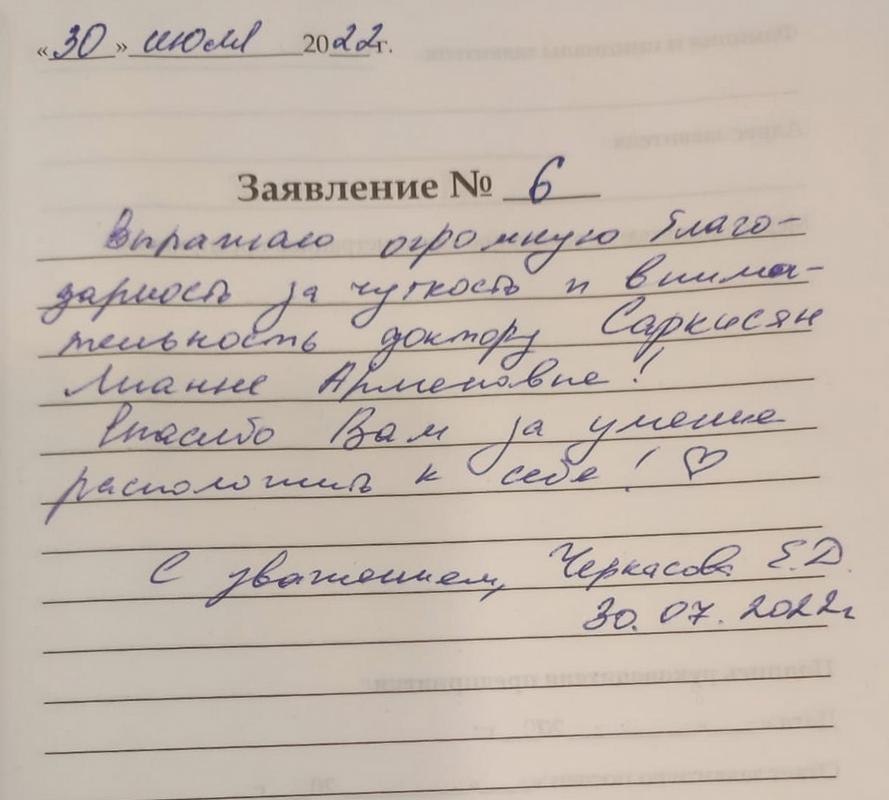 «30» июля 2022г.
Заявление № 6
Выражаю огромную благо-
дарность за чуткость и внима-
тельность доктору Саркисян
Лианне Арменовне!
Спасибо Вам за умение
расположить к себе! ♡
С уважением, Черкасова Е.Д.
30.07.2022г